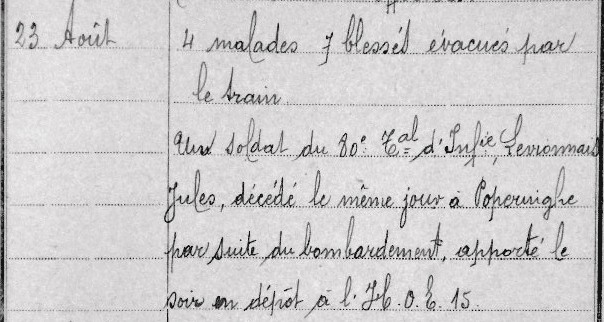 23 Août 4 malades 7 blessés évacués par
le train.
Un soldat du 80e Tal d'Infie, Levionnais
Jules, décédé le même jour à Poperinghe
par suite du bombardement, apporté le
soir en dépôt à l'H.O.E. 15.